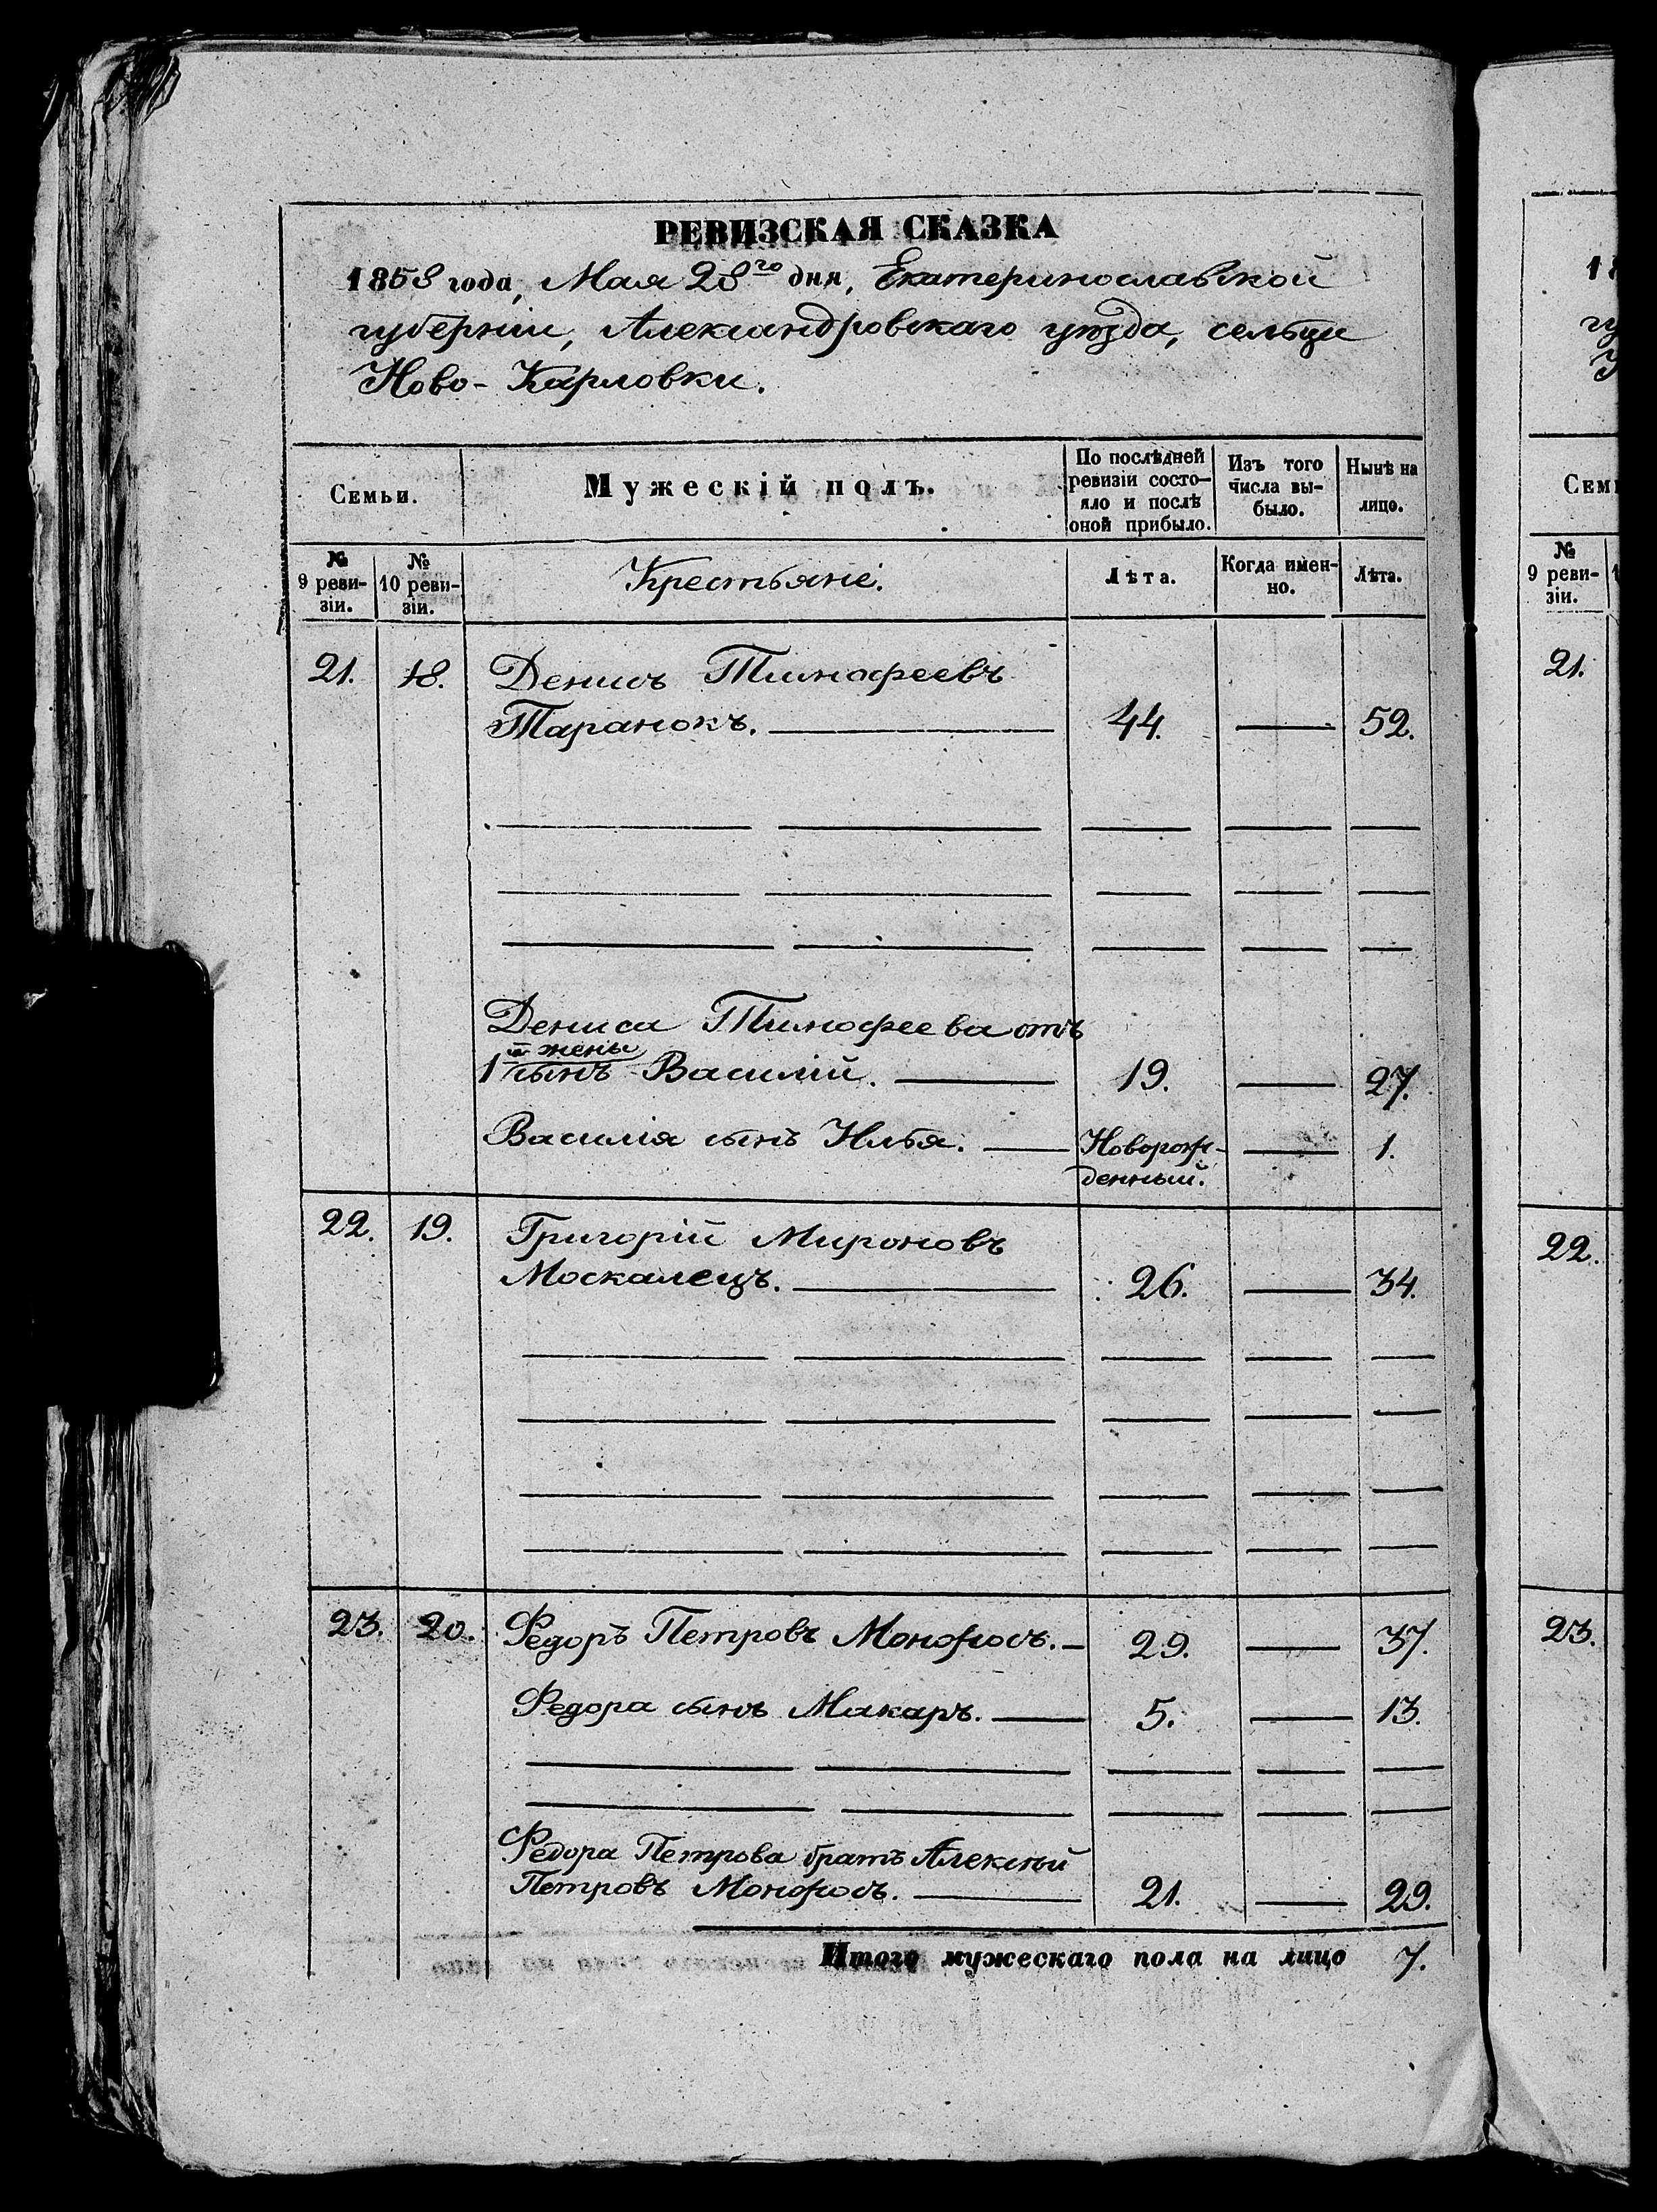 РЕВИЗСКАЯ СКАЗКА
1858 года, Мая 28го дня, Екатеринославской
губернiи, Александровскаго уѣзда, сельца
Ново-Карловки.
Семьи.
Мужескiй полъ.
По послѣдней
ревизiи состо-
яло и послѣ
оной прибыло.
Изъ того
числа вы-
было.
Нынѣ на
лицо.
№
9 реви-
зiи.
№
10 реви-
зiи.
Крестьяне.
Лѣта.
Когда имен-
но.
Лѣта.
21. 18. Денисъ Тимофеевъ
Таранокъ. 44. — 52.
Дениса Тимофеева отъ
1й жены
сынъ Василiй. 19. — 27.
Василiя сынъ Илья. Новорож- — 1.
денный.
22. 19. Григорiй Мироновъ
Москалецъ. 26. — 34.
23. 20. Федоръ Петровъ 29. — 37.
Федора сынъ Макаръ. 5. — 13.
Федора Петрова братъ Алексѣй
Петровъ 21. — 29.
Итого мужескаго пола на лицо 7.
18
гу
Семь
№
9 реви-
зiи.
21.
22.
23.